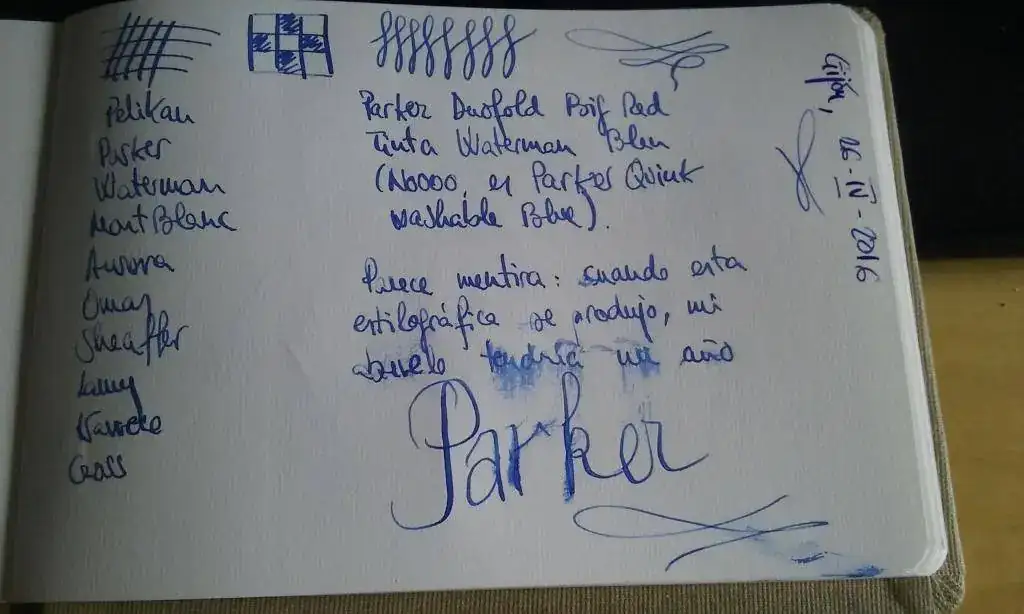 Pelikan
Parker
Waterman
MontBlanc
Aurora
Omas
Sheaffer
Lamy
Cross
Parker Duofold Big Red
Tinta Waterman Blue
(Noooo, es Parker Quink
washable Blue).
Parece mentira: cuando esta
estilográfica se produjo, mi
abuelo tendría un año
Parker
Gijón, 05-IV-2016